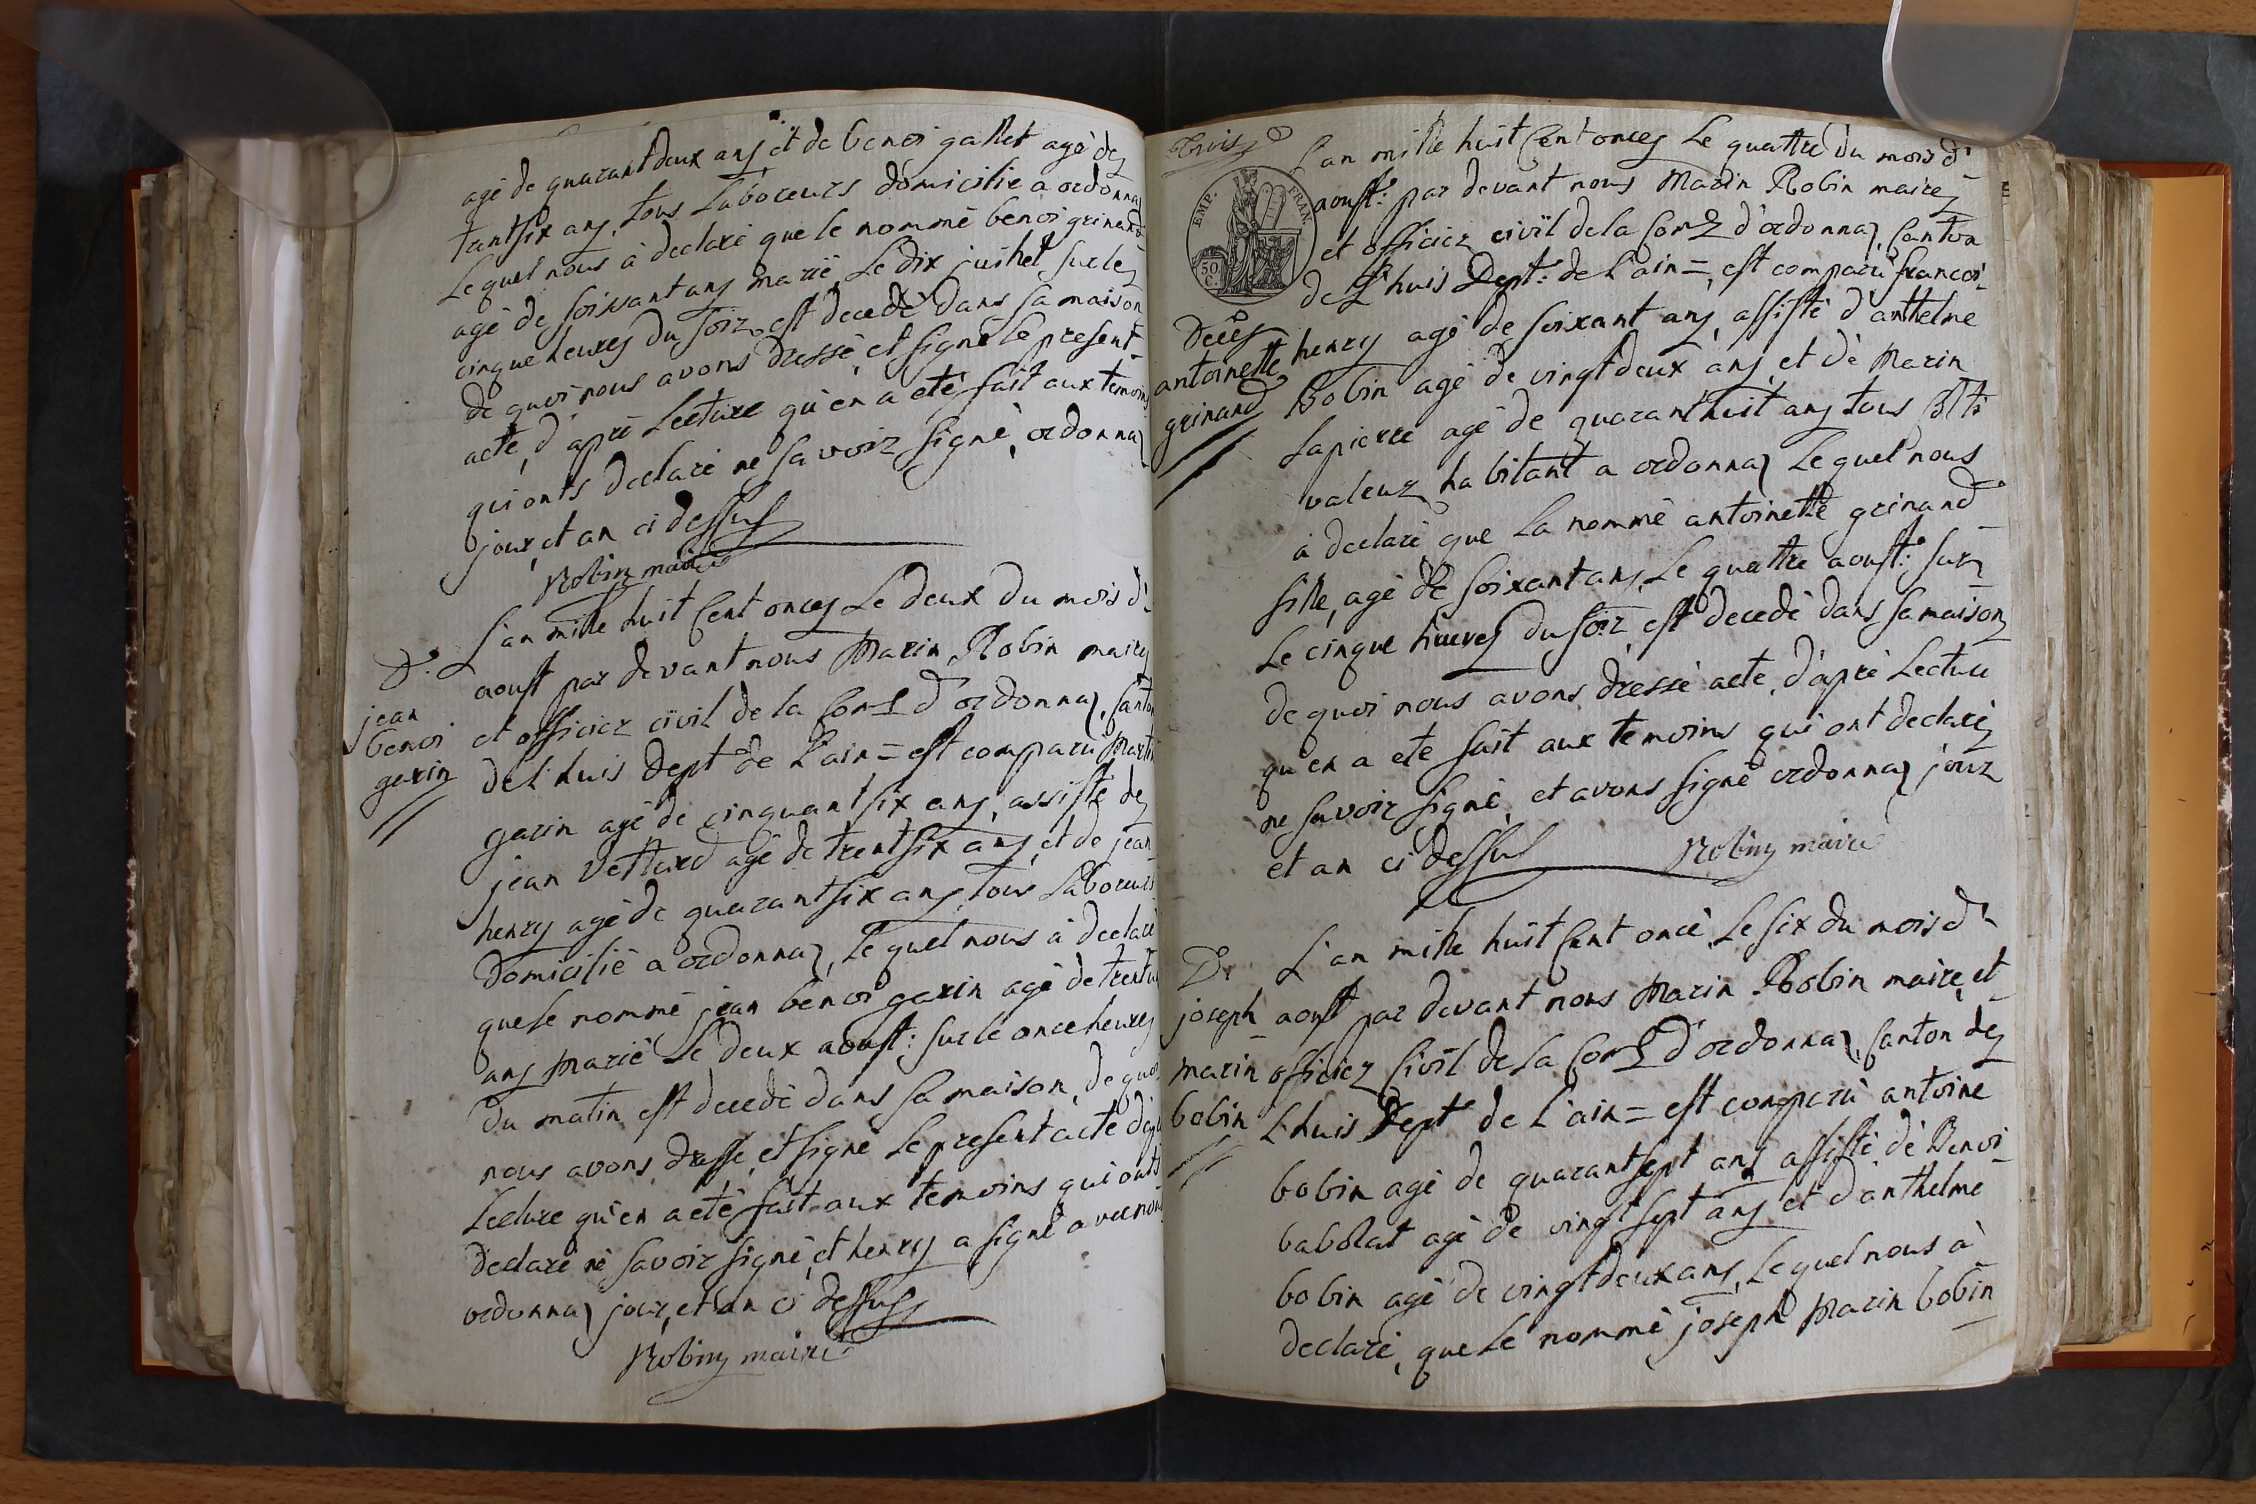 agé de quarantdeux ans, et de benoi gallet agé de
tantsix ans, tous Laboreurs domicilie a ordonnaz
Le quel nous à declaré que le nommé benoi grinand
agé de soixant ans marié, Le dix juillet sur les
cinque heures du soir est decedé dans sa maison
de quoi nous avons dressé, et signé le present
acte, d'apré Lecture qu'en a eté fait aux temoins
qui onts declaré ne savoir signé, ordonnaz
jour, et an ci dessus
Robin maire
D.
jean
benoi
garin
L'an mille huit Cent onces Le deux du mois d'
aoust par devant nous Marin Robin maire
et officier civil de la Com.e d'ordonnaz, Canton
de l'huis Dept de L'ain = est comparu Martin
garin agé de cinquantsix ans, assisté de
jean Vettard agé de trentsix ans, et de jean
henry agé de quarantsix ans, tous Laboreurs
Domicilié a ordonnaz, Le quel nous à declaré
que le nommé jean benoi garin agé de trent
ans Marié Le deux aoust: sur le once heures
du matin est decedé dans sa maison, de quoi
nous avons dressé, et signé Le present acte d'apré
Lecture qu'en a eté fait aux temoins qui onts
declaré né savoir signé, et henry a signé avec nous
ordonnaz jour, et an ci dessus
Robin maire
trois
EMP. FRAN.
50
C.
L'an mille huit Cent onces Le quattre du mois d'
aoust: par devant nous Marin Robin maire
et officier civil de la Com.e d'ordonnaz, Canton
de L'huis Dept: de L'ain =, est comparu francoi
Décés
antoinette
grinand
henry agé de soixant ans, assisté d'anthelme
Bobin agé de vingtdeux ans, et dé Marin
Lapierre agé de quarant'huit ans tous Colti
valeur habitant a ordonnaz Le quel nous
à declaré que La nommé antoinette grinand
fille, agé de soixant ans, Le quattre aoust: sur
Le cinque heures du soir, est decedé dans sa maison
de quoi nous avons dressé acte, d'apré Lecture
qu'en a eté fait aux temoins qui ont declaré
ne savoir signé, et avons signé ordonnaz jour
et an ci dessus Robin maire
D.
joseph
marin
bobin
L'an mille huit Cent once Le six du mois d'
aoust par devant nous Marin Robin maire, et
officier Civil de la Com.e d'ordonnaz, Canton de
L'huis Dept de L'ain = est comparu antoine
bobin agé de quarantsept ans assisté dé Benoi
babolat agé de vingtsept ans, et d'anthelme
bobin agé de vingtdeux ans, Le quel nous à
declaré, que Le nommé joseph Marin bobin